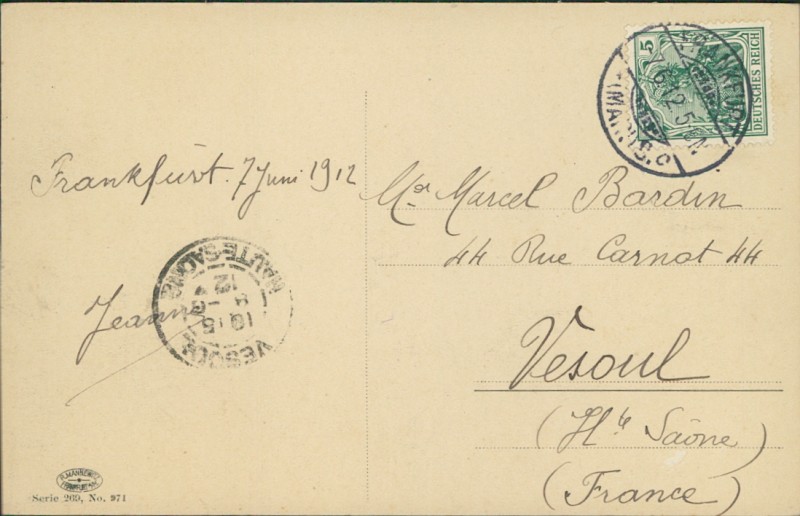 5
DEUTSCHES REICH
FRANKFURT
7.6.12.5-6N
(MAIN)
Frankfurt. 7 Juni 1912
Jeanne
Mr Marcel Bardin
44 Rue Carnot 44
Vesoul
(Hte Saône)
(France)
VESOUL
18 15
8 - 6
12
HAUTE-SAONE
Serie 269, No. 971